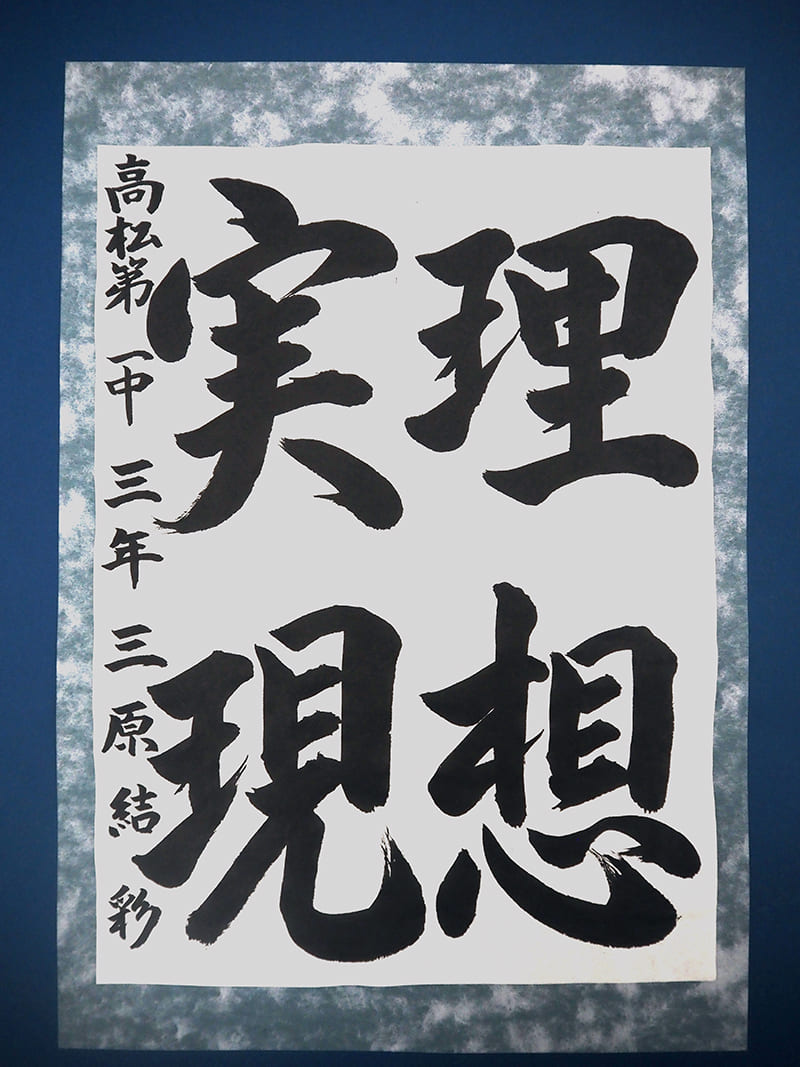 理想
実現
高松第一中 三年 三原結彩